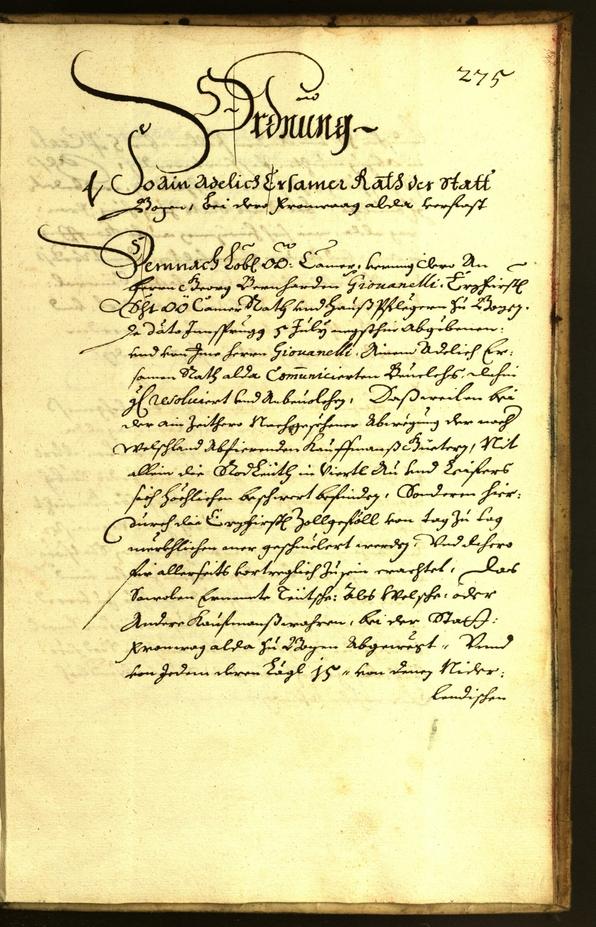 275
Ordnung
So ain Adelich Ersamer Rath der Statt
Bozen, bei dero Fronwaag alda verfast
Demnach Lobl. OÖ: Camer, vermüg dero An
Herrn Georg Bernharden Giovanelli. Erzfürstl
OÖ Camer Rath und Hauß Pflegern zu Bozen.
de dato Innsprugg 5 July Abgebenen:
und von Ime Herrn Giovanelli. Ainem Adelich Er:
samen Rath alda Communicierten Bevelchs,
resoluiert und Anbevolchen, Daß weilen bei
der ain Zeithero Nachgesehener Abwegung der nach
Welschland Abfierenden Kauffmanß Güetern, Nit
allain die Rodleüth in Viertl An und Leifers
sich höchlichen beschwert befinden, Sonderen hier:
durch die Erzfürstl Zollgeföll von tag zu tag
mercklichen geschmelert werden, Und dahero
für allerseits vortreglich zusein erachtet, Das
Sowolen Ernannte Teütsche: Als Welsche: oder
Andere Kaufmanßwahren, bei der Statt:
Fronwag alda zu Bozen Abgewegt, Unnd
von Jedem deren Lägl 15 von denen Nider:
lendischen